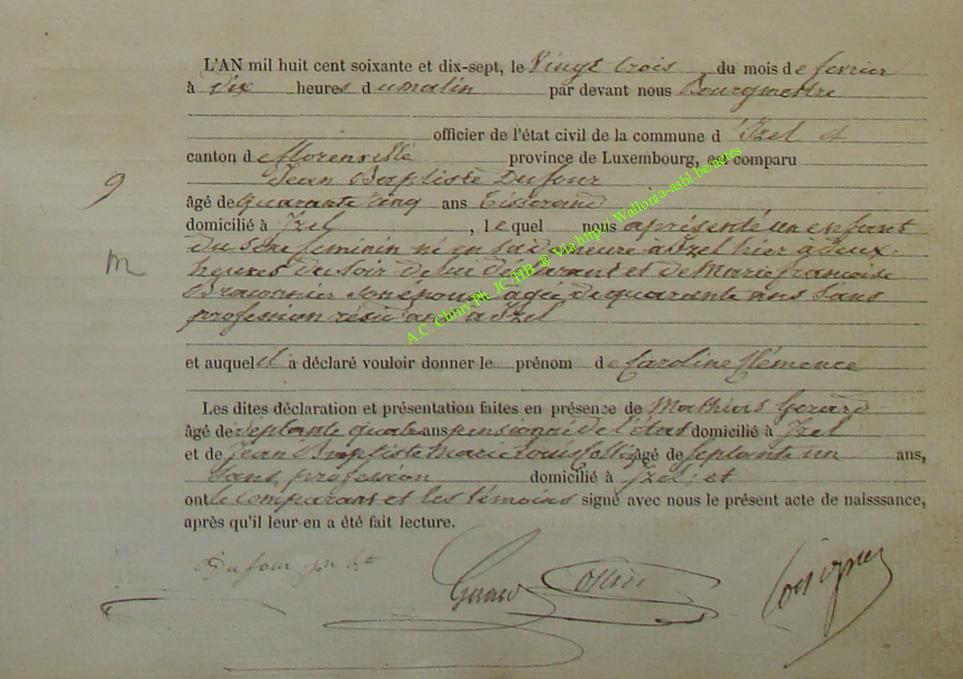 L'AN mil huit cent soixante et dix-sept, le Vingt trois du mois de fevrier
à Dix heures du matin par devant nous Bourgmestre
officier de l'état civil de la commune d'Izel
canton de florenville province de Luxembourg, est comparu
Jean Baptiste Dufour
9
âgé de quarante cinq ans tisserand
domicilié à Izel , lequel nous a présenté un enfant
du sexe feminin né en sa demeure à Izel hier à deux
m
heures du soir de lui déclarant et de Marie francoise
Braconnier son épouse agée de quarante ans Sans
profession résidant à Izel
et auquel il a déclaré vouloir donner le prénom de Caroline Clémence
Les dites déclaration et présentation faites en présence de Mathias Gerard
âgé de septante quatre ans pensionné de l'état domicilié à Izel
et de Jean Baptiste Marie Louis Collin âgé de Septante un ans,
Sans profession domicilié à Izel; et
ont le comparant et les témoins signé avec nous le présent acte de naisssance,
après qu'il leur en a été fait lecture.
Dufour Jn Bte
Gerard Collin
A.C. Chiny Ph JC/HB ® Via http// Wallonia-asbl.be/actes